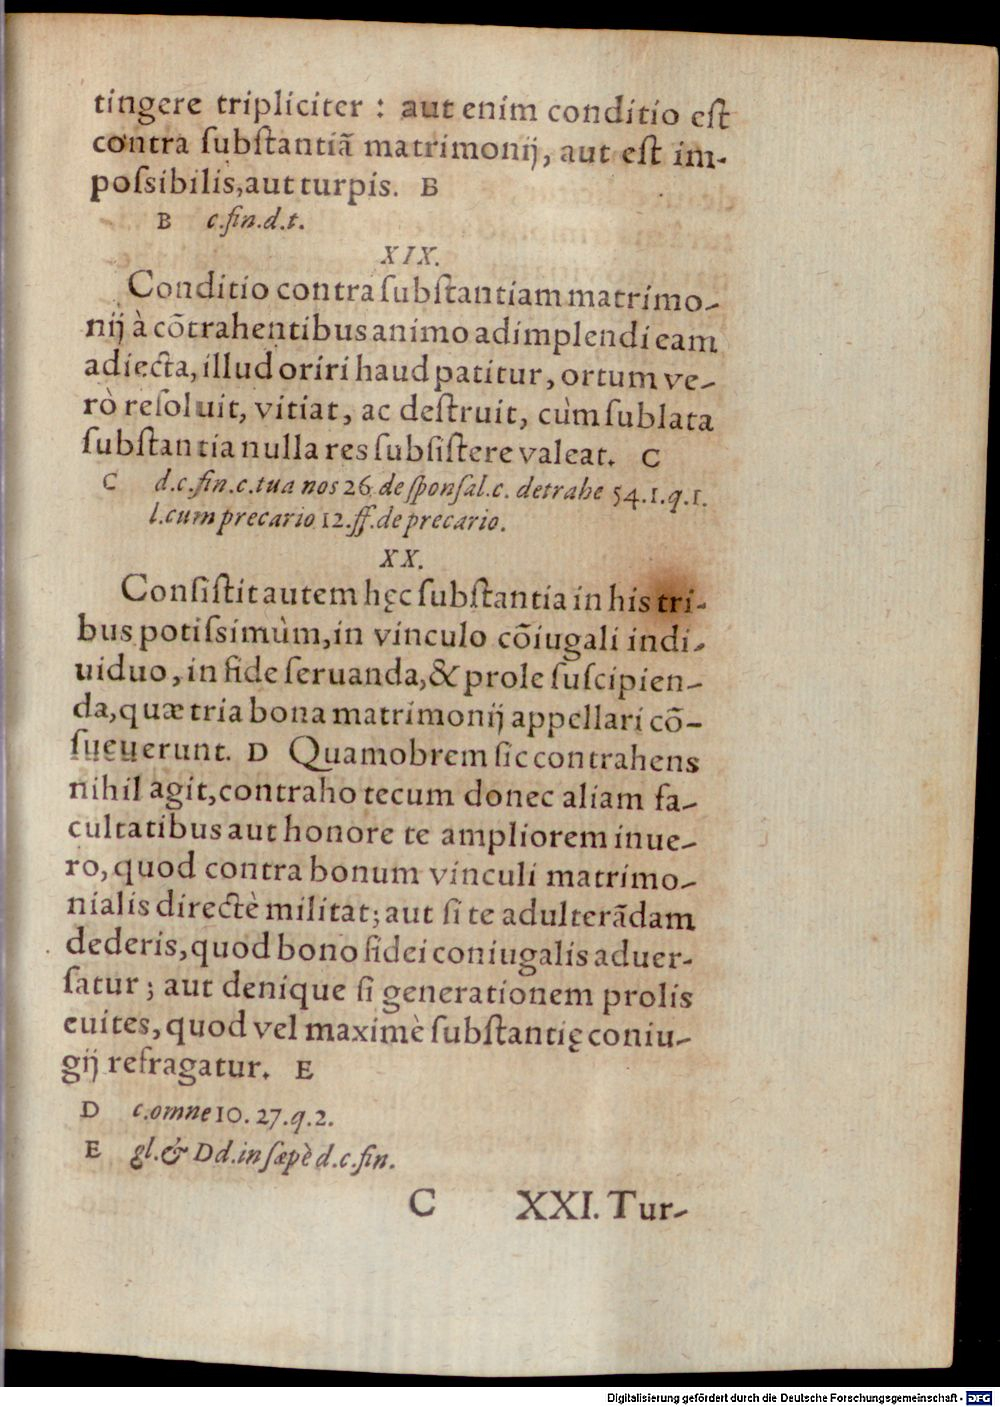 tingere tripliciter : aut enim conditio eſt
contra ſubſtantiã matrimonij, aut eſt im-
poſsibilis, aut turpis. B
B c. fin. d. t.
XIX.
Conditio contra ſubſtantiam matrimo-
nij à cõtrahentibus animo adimplendi eam
adiecta, illud oriri haud patitur, ortum ve-
rò reſoluit, vitiat, ac deſtruit, cùm ſublata
ſubſtantia nulla res ſubſiſtere valeat. C
C d. c. fin. c. tua nos 26 de ſponſal. c. detrahe 54. 1. q. 1.
l. cum precario 12. ff. de precario.
XX.
Conſiſtit autem hęc ſubſtantia in his tri-
bus potiſsimùm, in vinculo cõiugali indi-
uiduo, in fide ſeruanda, & prole ſuſcipien-
da, quæ tria bona matrimonij appellari cõ-
ſueuerunt. D Quamobrem ſic contrahens
nihil agit, contraho tecum donec aliam fa-
cultatibus aut honore te ampliorem inue-
ro, quod contra bonum vinculi matrimo-
nialis directè militat; aut ſi te adulterãdam
dederis, quod bono fidei coniugalis aduer-
ſatur; aut denique ſi generationem prolis
euites, quod vel maximè ſubſtantię coniu-
gij refragatur. E
D c. omne 10. 27. q. 2.
E gl. & Dd. in ſæpè d. c. fin.
C XXI. Tur-
Digitalisierung gefördert durch die Deutsche Forschungsgemeinschaft - DFG